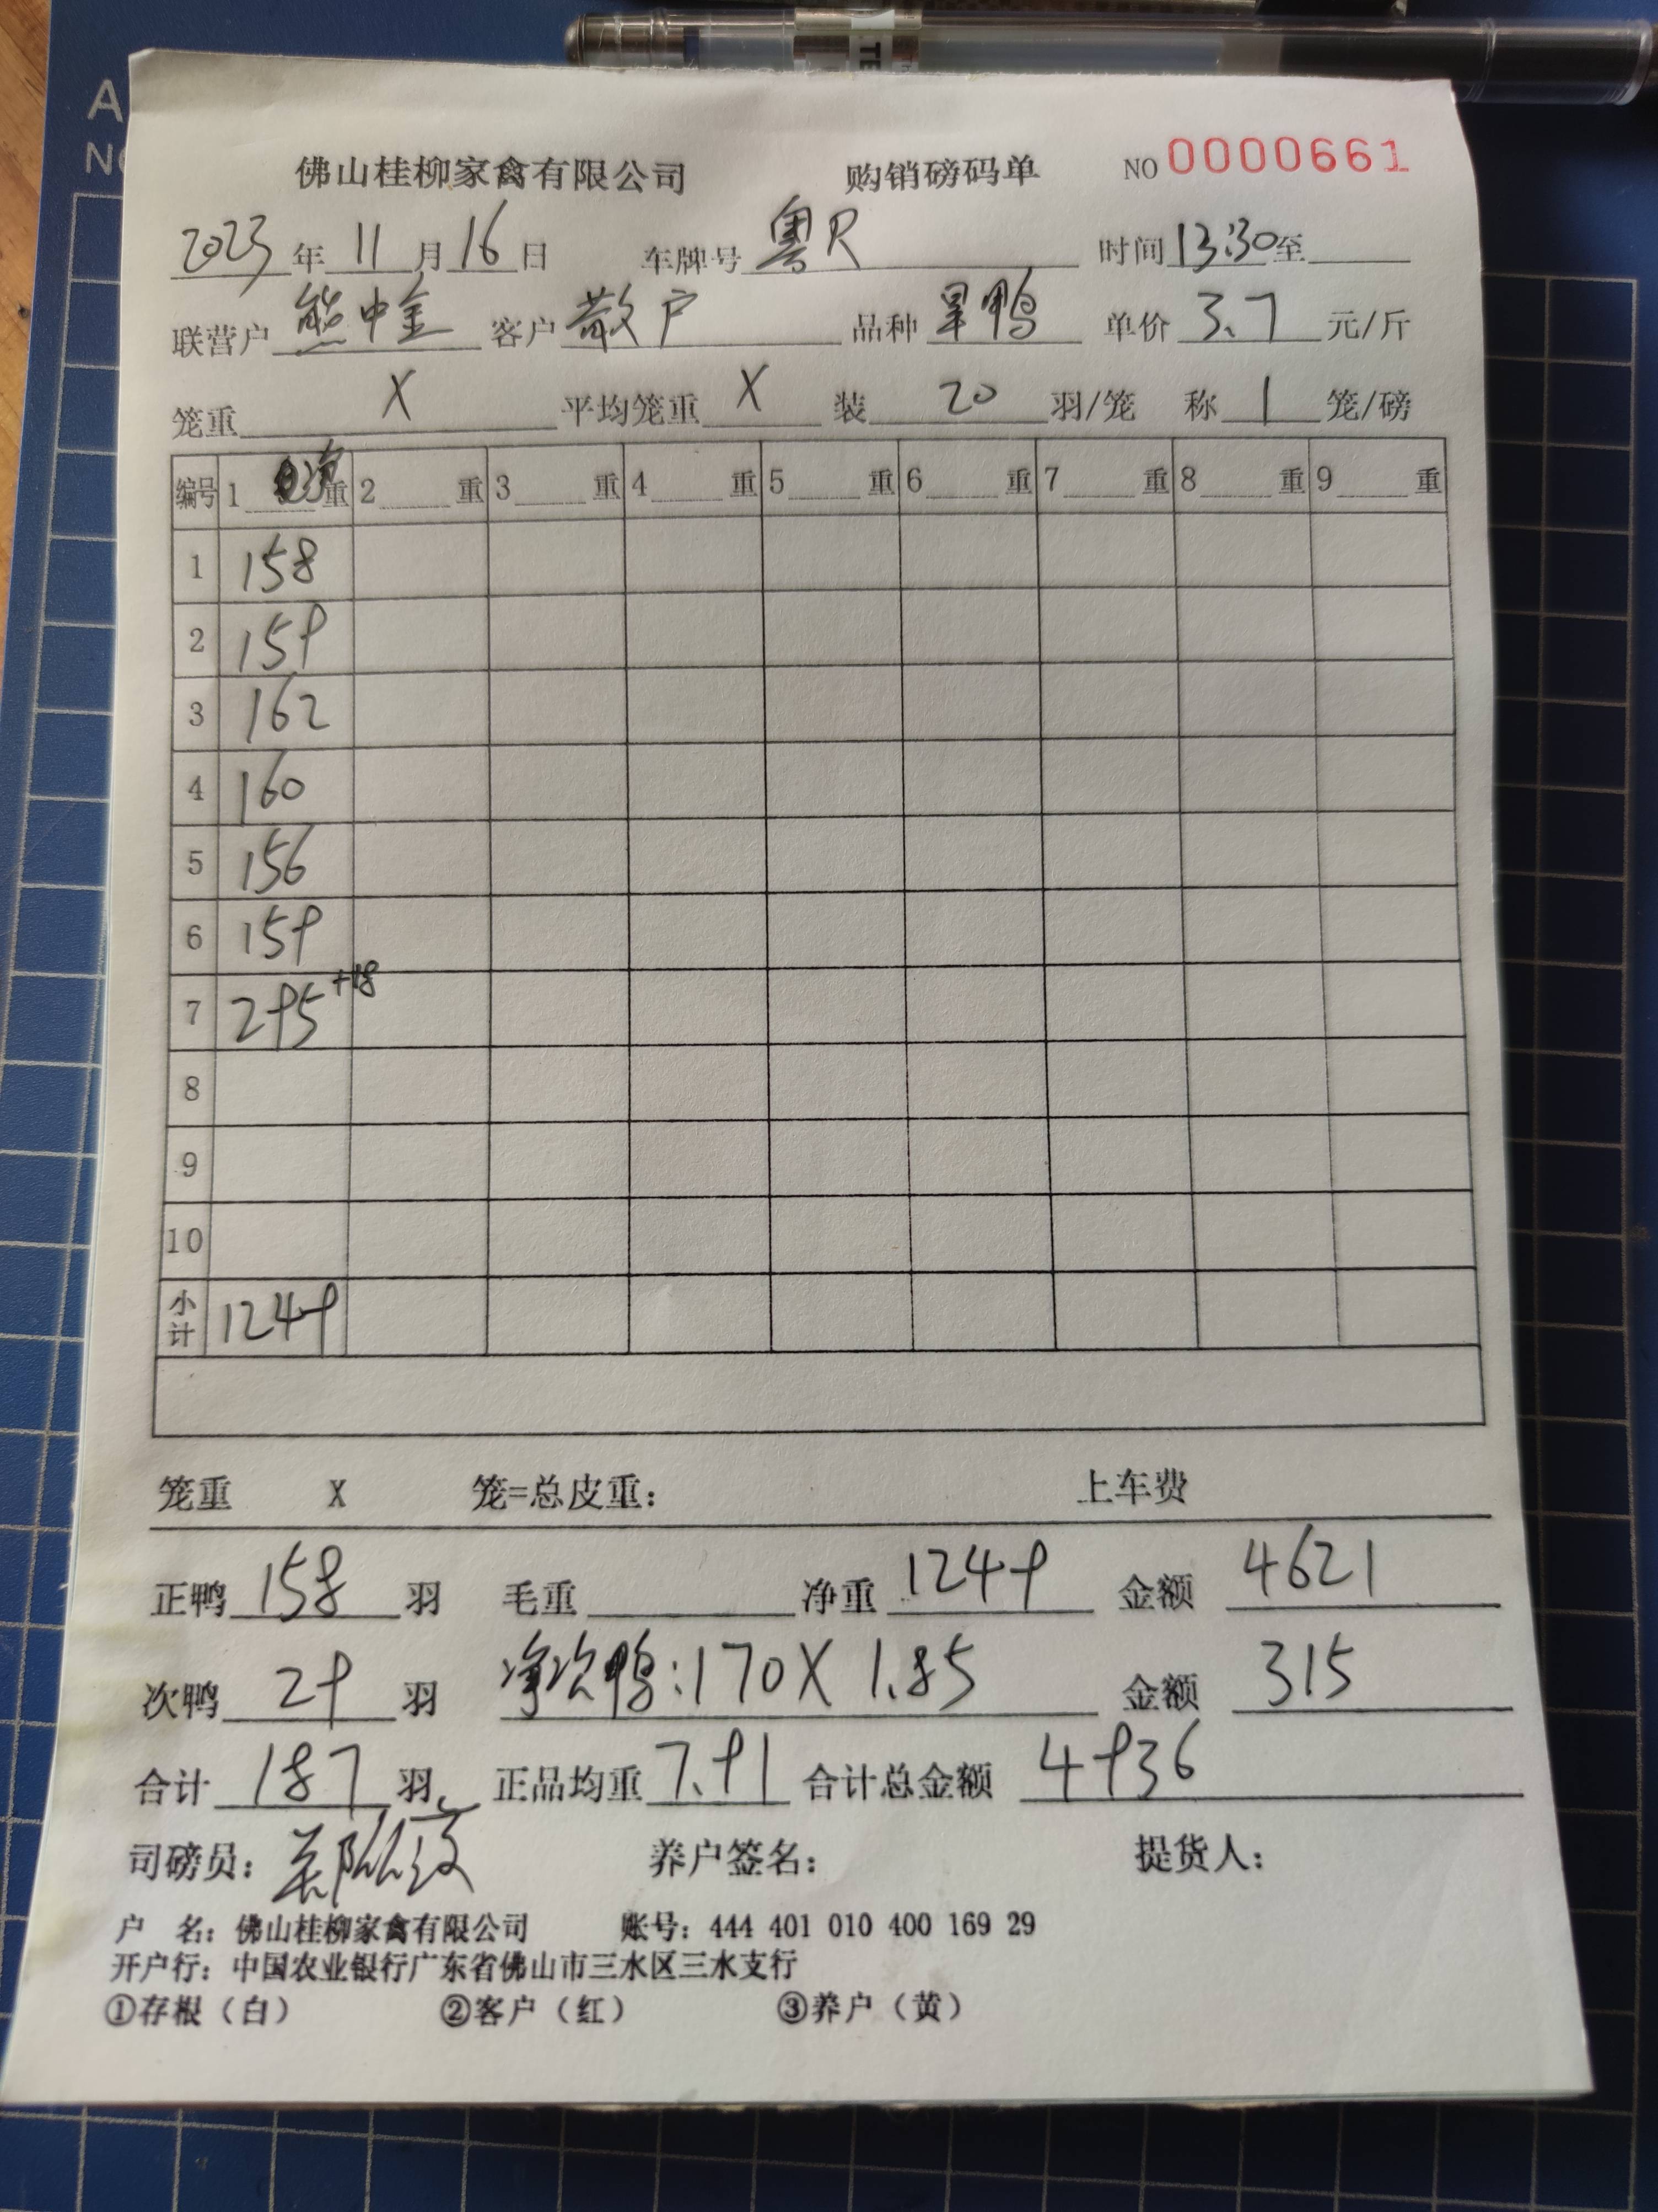 佛山桂柳家禽有限公司 购销磅码单 NO 0000661
2023年11月16日 车牌号 粤R 时间 13:30至
联营户 熊中金 客户 散户 品种 旱鸭 单价 3.7 元/斤
笼重 X 平均笼重 X 装 20 羽/笼 称 1 笼/磅
编号 1 净重 2 重 3 重 4 重 5 重 6 重 7 重 8 重 9 重
1 158
2 159
3 162
4 160
5 156
6 159
7 295 +18
8
9
10
小计 1249
笼重 X 笼=总皮重： 上车费
正鸭 158 羽 毛重 净重 1249 金额 4621
次鸭 29 羽 净次鸭:170X1.85 金额 315
合计 187 羽 正品均重 7.91 合计总金额 4936
司磅员： 养户签名： 提货人：
户 名：佛山桂柳家禽有限公司 账号：444 401 010 400 169 29
开户行：中国农业银行广东省佛山市三水区三水支行
①存根（白） ②客户（红） ③养户（黄）